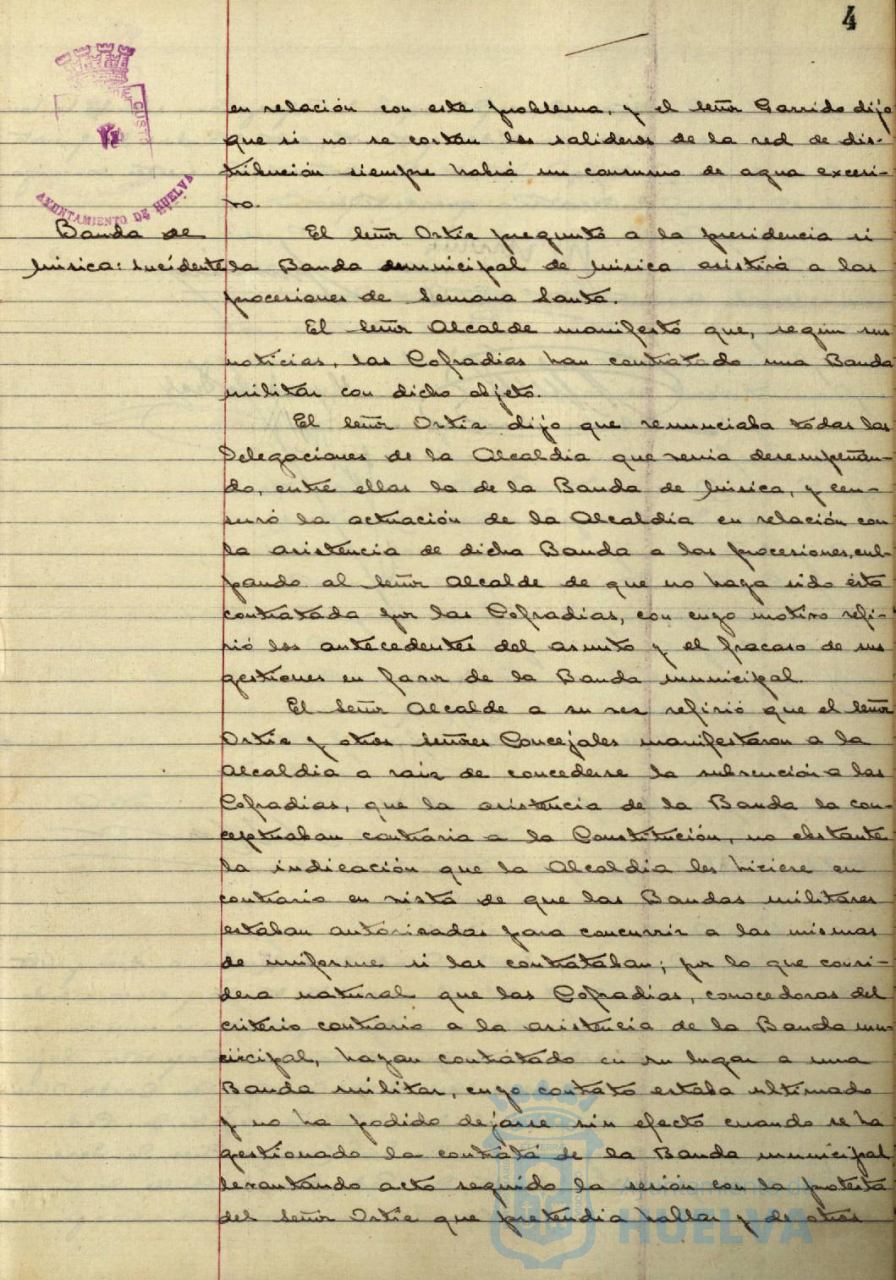 4
en relación con este problema, y el señor Garrido dijo
que si no se cortan los salideros de la red de dis-
tribución siempre habrá un consumo de agua excesi-
vo.
CUSTO
AYUNTAMIENTO DE HUELVA
Banda de
Música: Incidente
El señor Ortiz preguntó a la presidencia si
la Banda municipal de Música asistirá a las
procesiones de Semana Santa.
El señor Alcalde manifestó que, según sus
noticias, las Cofradías han contratado una Banda
militar con dicho objeto.
El señor Ortiz dijo que renunciaba todas las
Delegaciones de la Alcaldía que venía desempeñan-
do, entre ellas la de la Banda de Música, y cen-
suró la actuación de la Alcaldía en relación con
la asistencia de dicha Banda a las procesiones, cul-
pando al señor Alcalde de que no haya sido ésta
contratada por las Cofradías, con cuyo motivo refi-
rió los antecedentes del asunto y el fracaso de sus
gestiones en favor de la Banda municipal.
El señor Alcalde a su vez refirió que el señor
Ortiz y otros señores Concejales manifestaron a la
Alcaldía a raíz de concederse la subvención a las
Cofradías, que la asistencia de la Banda la con-
ceptuaban contraria a la Constitución, no obstante
la indicación que la Alcaldía les hiciere en
contrario en vista de que las Bandas militares
estaban autorizadas para concurrir a las mismas
de uniforme si las contrataban; por lo que consi-
dera natural que las Cofradías, conocedoras del
criterio contrario a la asistencia de la Banda mu-
nicipal, hayan contratado en su lugar a una
Banda militar, cuyo contrato estaba ultimado
y no ha podido dejarse sin efecto cuando se ha
gestionado la contrata de la Banda municipal
levantando acto seguido la sesión con la protesta
del señor Ortiz que pretendía hablar y de otros
HUELVA